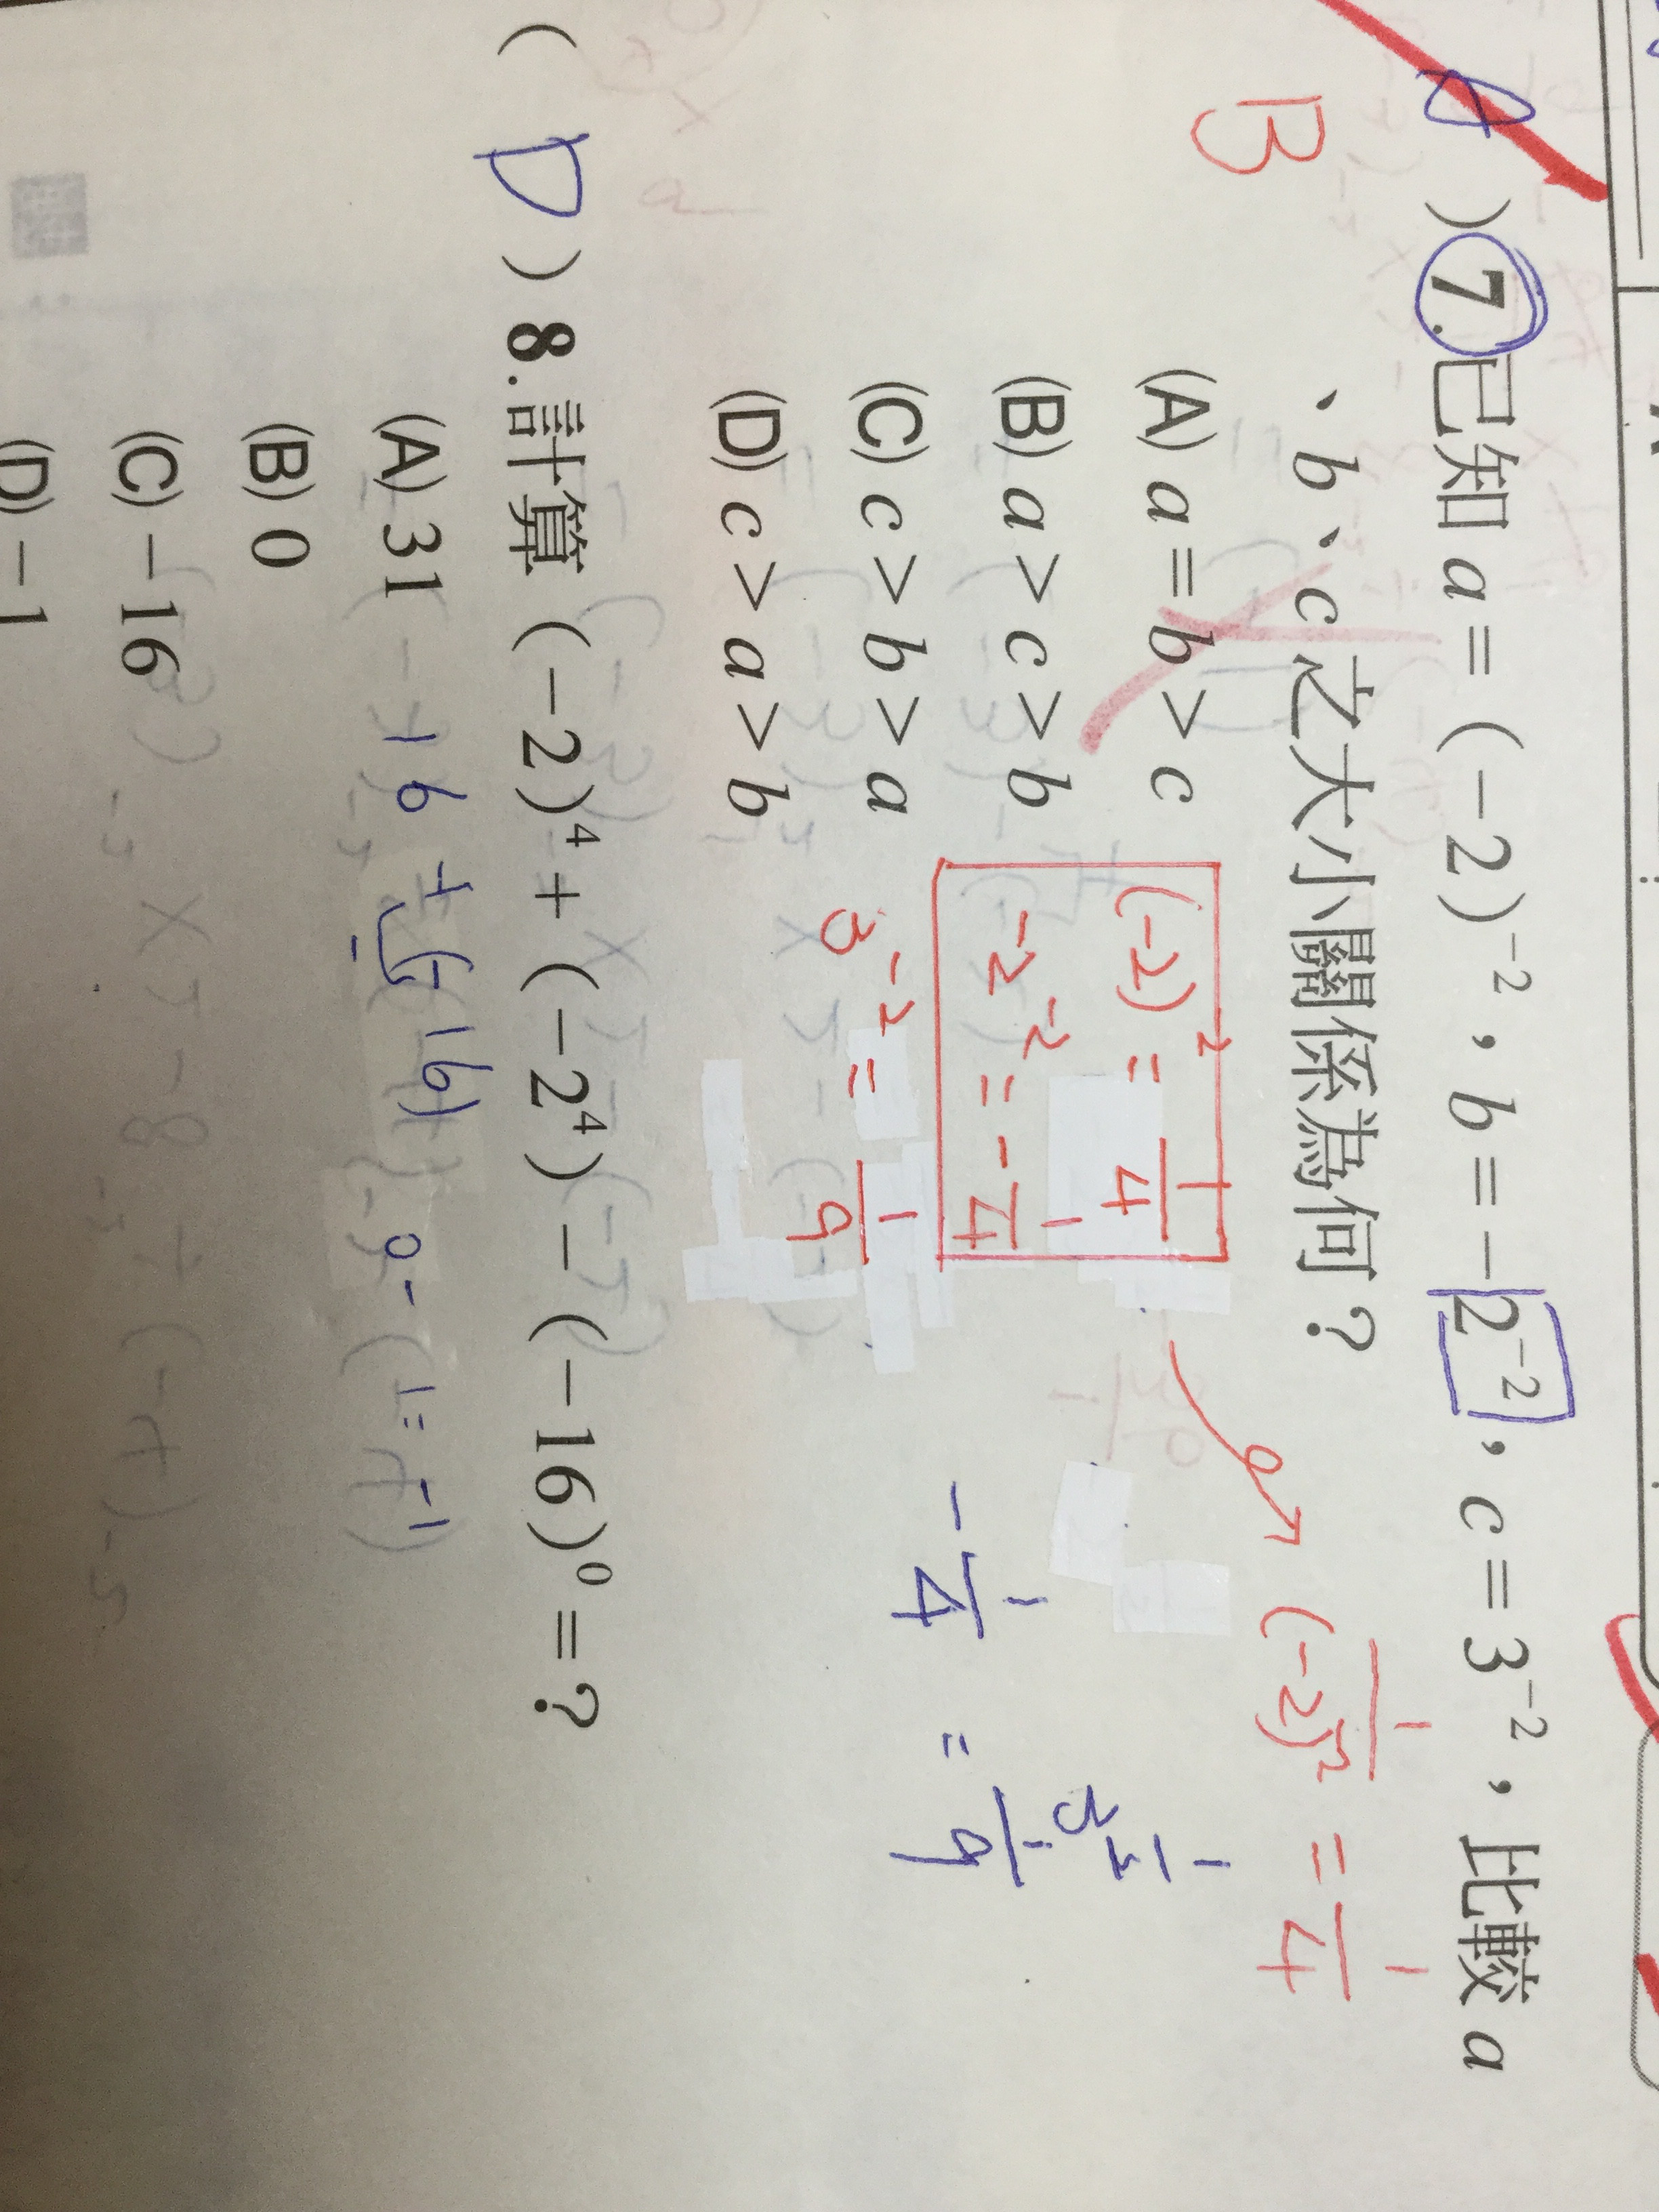 )7.已知 a=(-2)⁻²,b=-2⁻²,c=3⁻²,比較 a
B
、b、c之大小關係為何?
(A) a=b>c
(B) a>c>b
(C) c>b>a
(D) c>a>b
(-2)² = 1/4
-2⁻² = -1/4
3⁻² = 1/9
1/(-2)² = 1/4
-1/4 = 1/9
(D)8.計算(-2)⁴+(-2⁴)-(-16)⁰=?
(A) 31
(B) 0
(C) -16
(D) -1
16 + (-16)
0 - 1 = -1